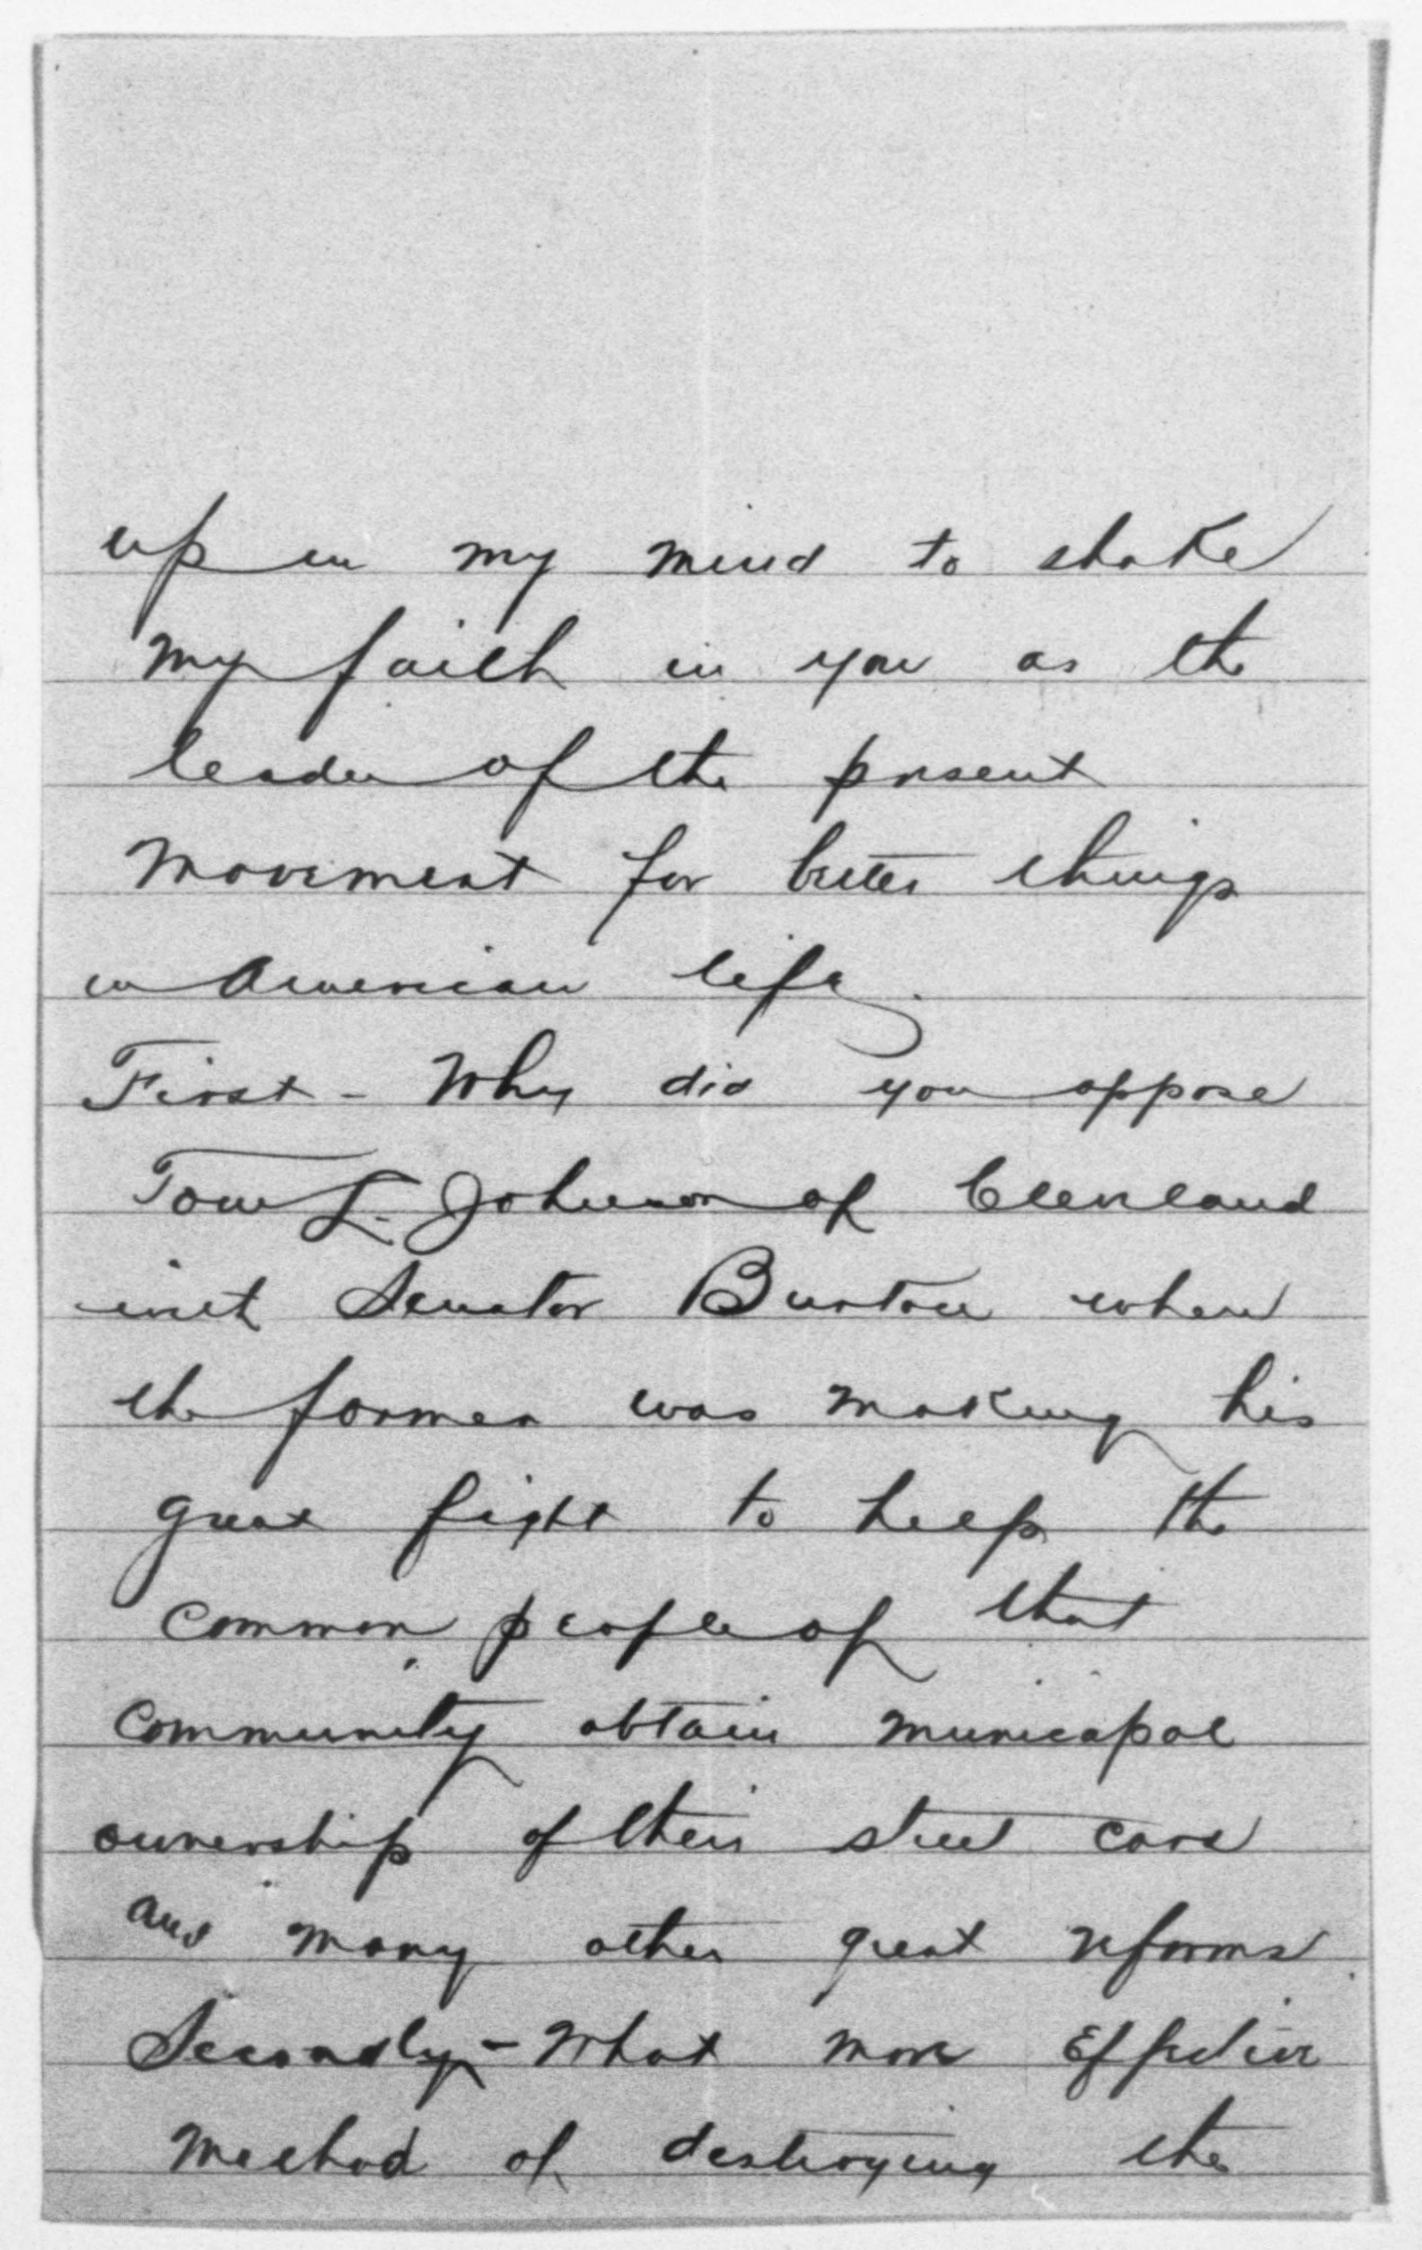 up in my mind to shake
my faith in you as the
leader of the present
movement for better things
in American life.
First - Why did you oppose
Tom L. Johnson of Cleveland
with Senator Burton when
the former was making his
great fight to help the
common people of that
community obtain municipal
ownership of their street cars
and many other great reforms.
Secondly - What more effective
method of destroying the